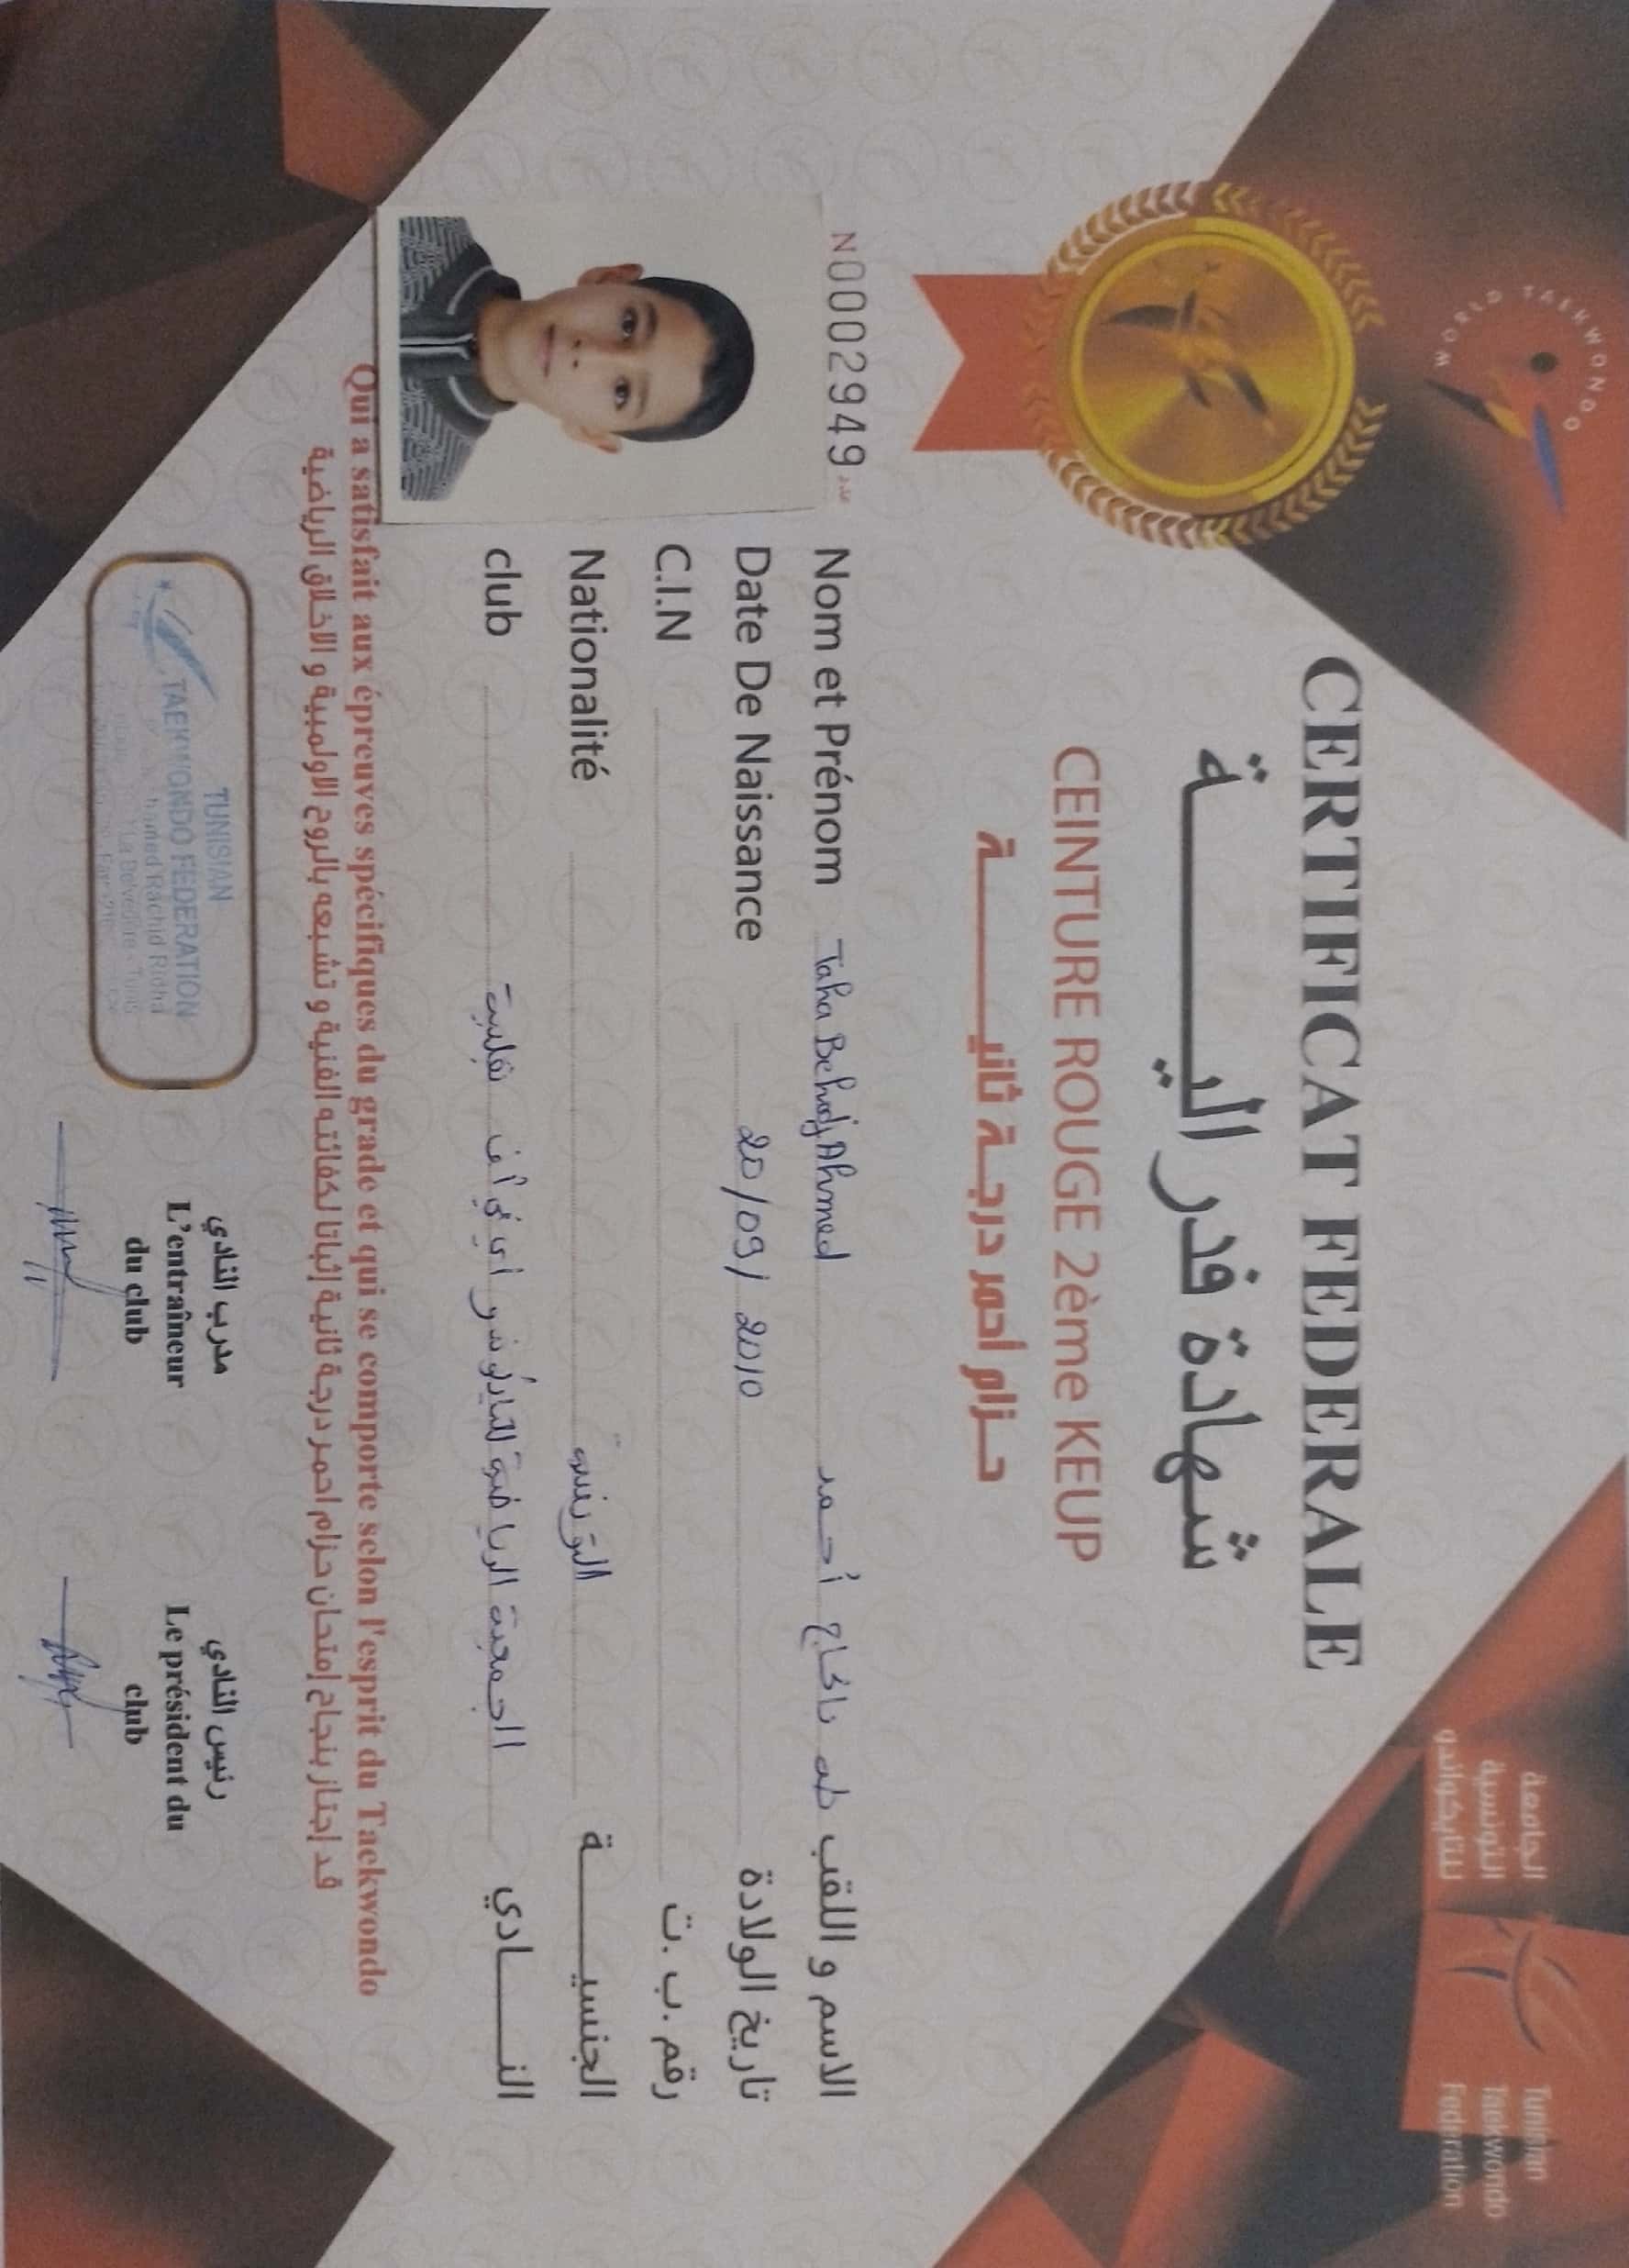 WORLD TAEKWONDO
الجامعة
التونسية
للتايكواندو
Tunisian
Taekwondo
Federation
CERTIFICAT FEDERALE
شهادة فدراليـــــــة
CEINTURE ROUGE 2ème KEUP
حـــزام أحمر درجـة ثانيـــــــة
N00002949 عدد
Nom et Prénom Taha Behadj Ahmed أحمد طه الاسم و اللقب
Date De Naissance 20/09/2010 تاريخ الولادة
C.I.N رقم .ب .ت
Nationalité التونسية الجنسيـــــــة
club الجمعية الرياضية للتايكوندو النـــــادي
Qui a satisfait aux épreuves spécifiques du grade et qui se comporte selon l'esprit du Taekwondo
قد إجتاز بنجاح إمتحان حزام احمر درجة ثانية إثباتا لكفائته الفنية و تشبعه بالروح الاولمبية و الاخلاق الرياضية
TUNISIAN
TAEKWONDO FEDERATION
Rachid Ridha
مدرب النادي
L'entraîneur
du club
رئيس النادي
Le président du
club